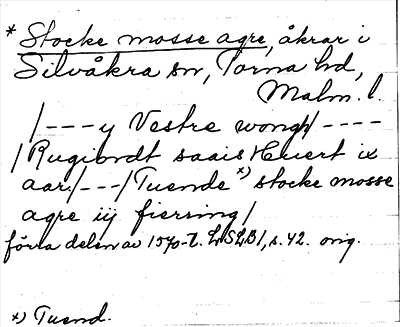 * Stocke mosse agre, åkrar i
Silvåkra sn, Torna hd,
Malm. l.
/---y Vestre wongh/----
/Rugiordt saais Huert ix
aar/---/Tuende x) stocke mosse
agre iij fierring/
förra delen av 1570-t. LSLB1, s. 42. orig.
x) Tuend.